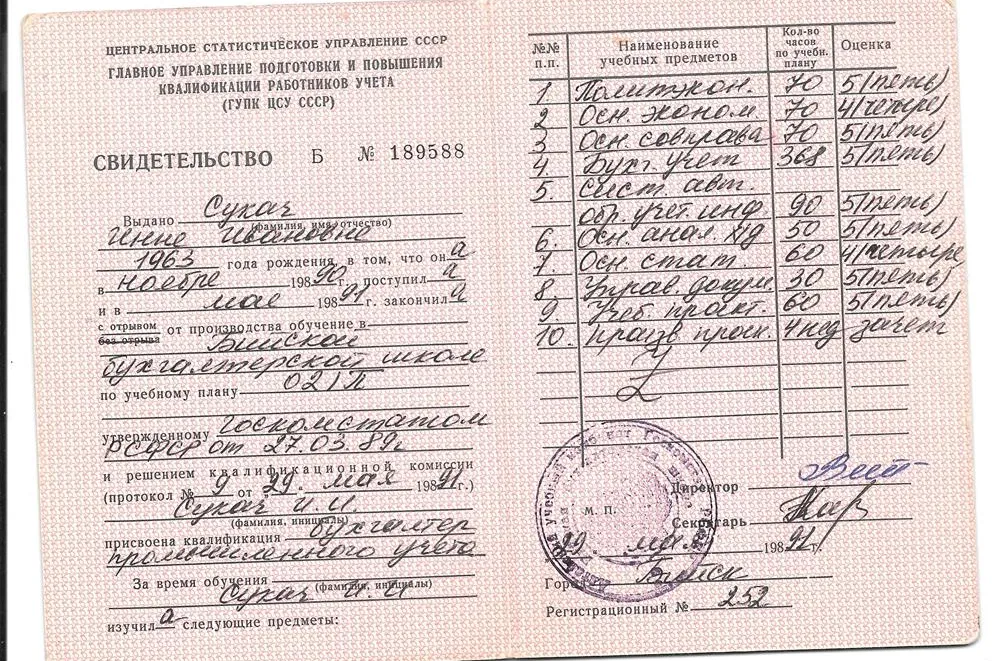 ЦЕНТРАЛЬНОЕ СТАТИСТИЧЕСКОЕ УПРАВЛЕНИЕ СССР
ГЛАВНОЕ УПРАВЛЕНИЕ ПОДГОТОВКИ И ПОВЫШЕНИЯ
КВАЛИФИКАЦИИ РАБОТНИКОВ УЧЕТА
(ГУПК ЦСУ СССР)
СВИДЕТЕЛЬСТВО Б № 189588
Выдано Сукач
(фамилия, имя, отчество)
Инне Ивановне
1963 года рождения, в том, что она
в ноябре 19890 г. поступила
и в мае 19891 г. закончила
с отрывом
без отрыва от производства обучение в
Бийской
бухгалтерской школе
по учебному плану 021П
утвержденному госкомстатом
РСФСР от 27.03.89г
и решением квалификационной комиссии
(протокол № 9 от 29 мая 19891 г.)
Сукач И.И.
(фамилия, инициалы)
присвоена квалификация бухгалтер
промышленного учета
За время обучения
(фамилия, инициалы)
Сукач И.И
изучила следующие предметы:
№№ п.п. Наименование учебных предметов Кол-во часов по учебн. плану Оценка
1. Политэкон. 70 5(пять)
2 Осн. эконом. 70 4(четыре)
3 Осн. совправа 70 5(пять)
4. Бухг. учет 368 5(пять)
5. Сист. авт.
обр. учет. инф 90 5(пять)
6. Осн. анал. хд 50 5(пять)
7. Осн. стат. 60 4(четыре)
8 Управ. докум. 30 5(пять)
9. Учеб. практ. 60 5(пять)
10. Произв практ. 4 нед зачет
Директор
М. П.
Секретарь
29 мая 19891 г.
Город Бийск
Регистрационный № 252